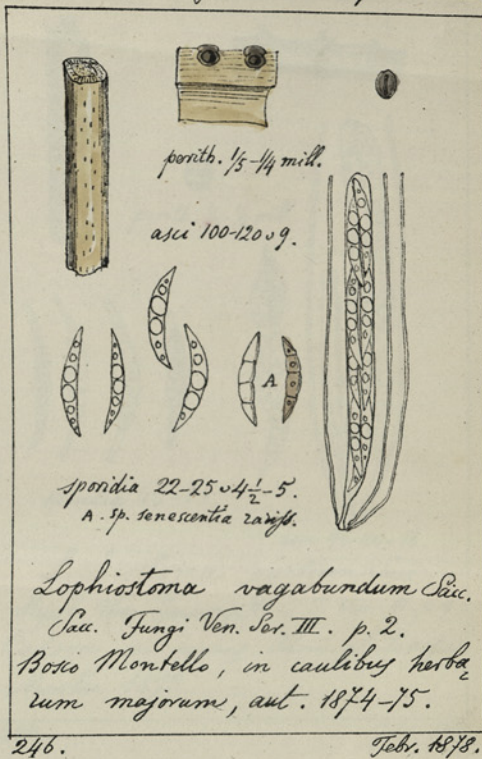 perith. 1/5-1/4 mill.
asci 100-120 ∪ 9.
A
sporidia 22-25 ∪ 4 1/2-5.
A. sp. senescentia rariss.
Lophiostoma vagabundum Sacc.
Sacc. Fungi Ven. Ser. III. p. 2.
Bosco Montello, in caulibus herba=
rum majorum, aut. 1874-75.
246. Febr. 1878.